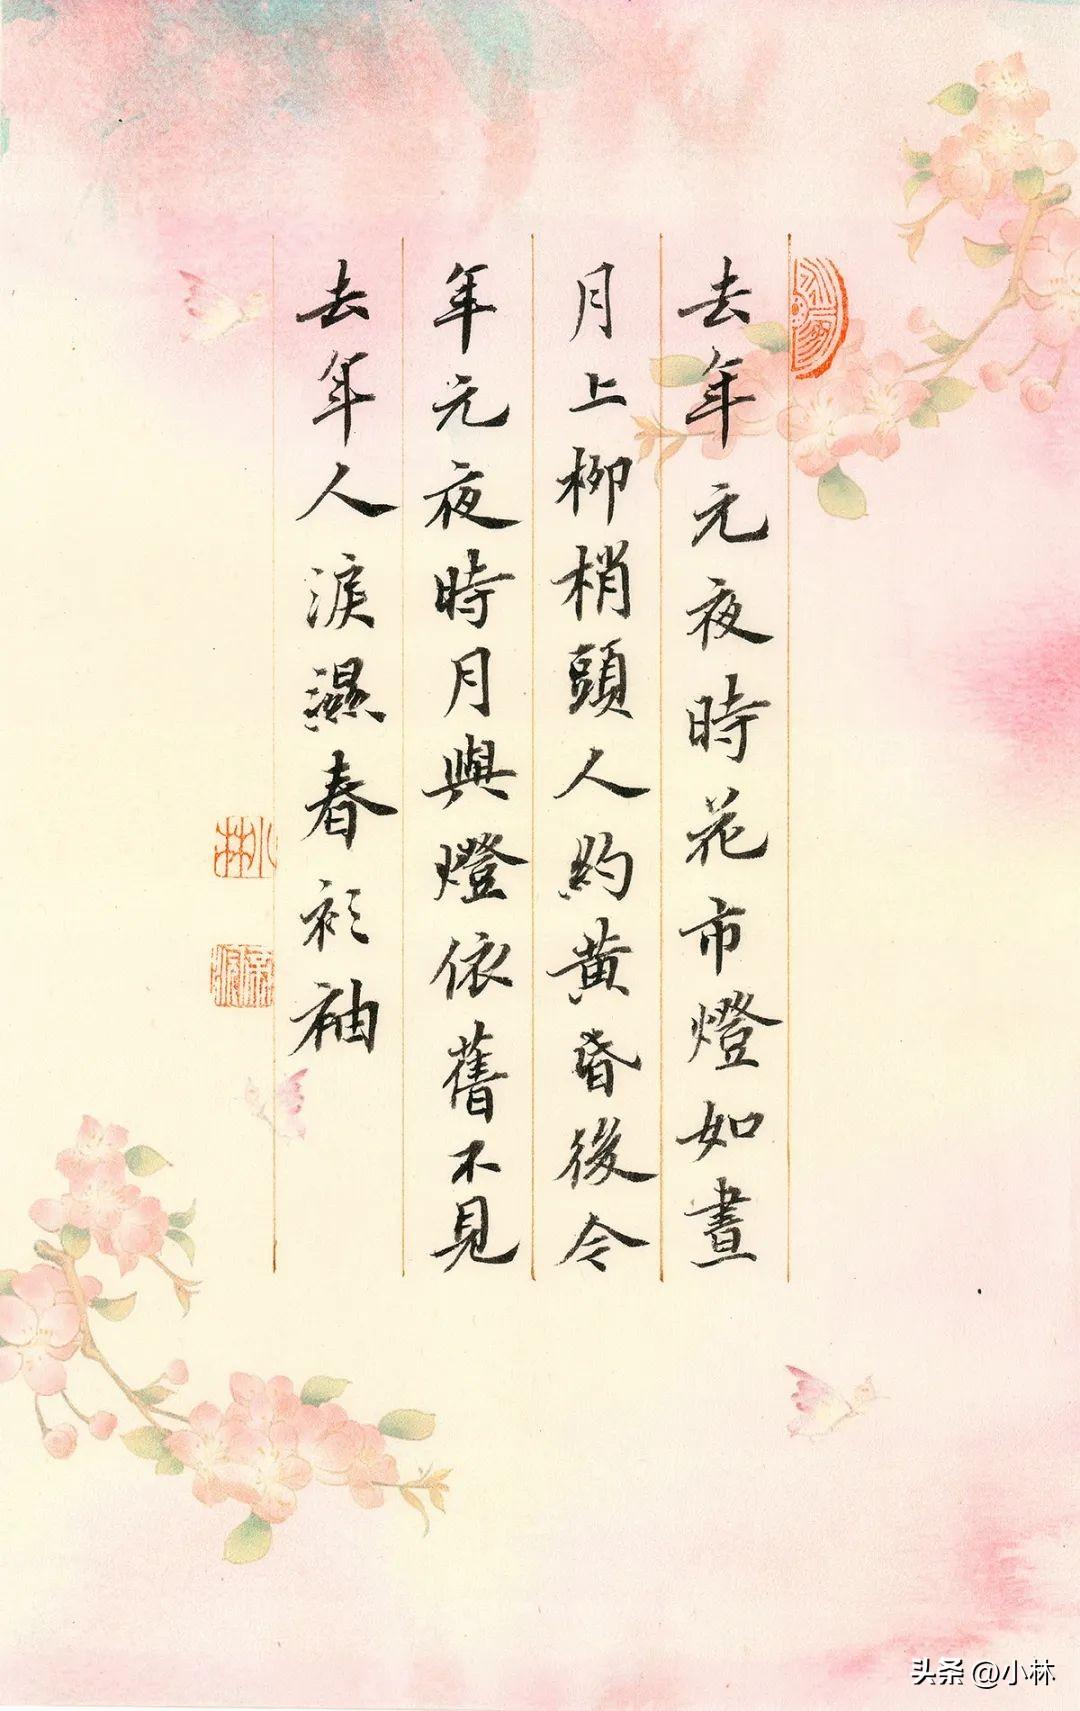 去年元夜時花市燈如晝
月上柳梢頭人約黃昏後今
年元夜時月與燈依舊不見
去年人淚濕春衫袖
小林
头条 @小林